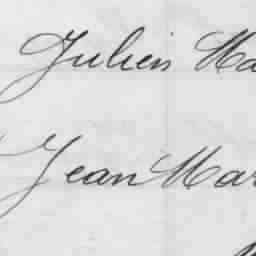 Julien Ma
Jean Mar